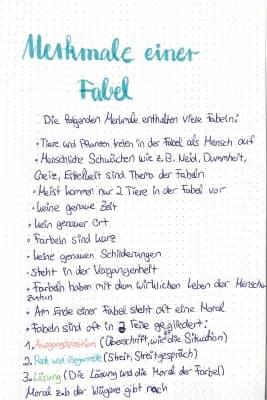 Merkmale einer
Fabel
Die folgenden Merkmale enthalten viele Fabeln:
• Tiere und Pflanzen treten in der Fabel als Mensch auf
• Menschliche Schwächen wie z.B. Neid, Dummheit,
Geiz, Eitelkeit sind Thema der Fabeln
• Meist kommen nur 2 Tiere in der Fabel vor
• keine genaue Zeit
• kein genauer Ort
• Farbeln sind kurz
• keine genauen Schilderungen
• steht in der Vergangenheit
• Farbeln haben mit dem wirklichen Leben der Mensch
zutun
• Am Ende einer Fabel steht oft eine Moral
• Fabeln sind oft in 3 Teile gegliedert:
1. Ausgangsposition (Überschrift, wie die Situation)
2. Rede und Gegenrede (Streit, Streitgespräch)
3. Lösung (Die Lösung und die Moral der Farbel)
Moral z.B der Klügere gibt nach